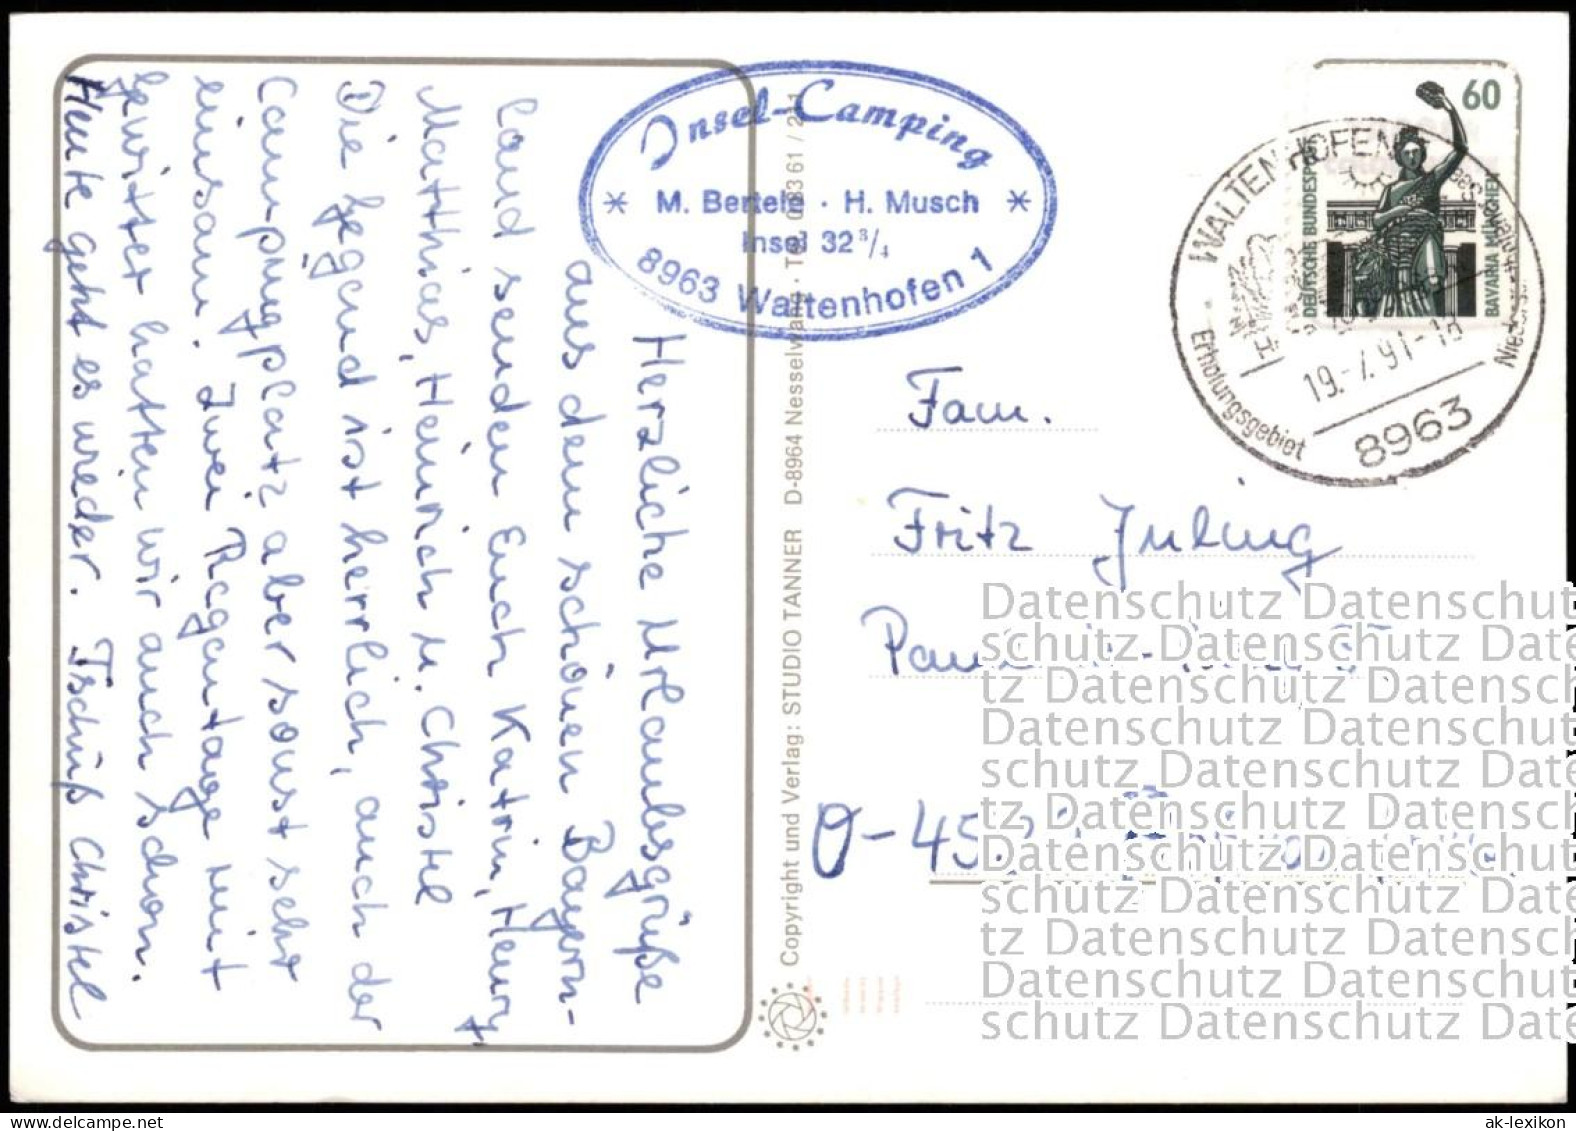 Herzliche Urlaubsgrüße
aus dem schönen Bayern-
land senden Euch Katrin, Henry,
Matthias, Heinrich u. Christel
Die Gegend ist herrlich, auch der
Campingplatz aber sonst sehr
einsam. Zwei Regentage mit
Gewitter hatten wir auch schon.
Heute geht es wieder. Tschüß Christel
Insel-Camping
* M. Bertele · H. Musch *
Insel 32 3/4
8963 Waltenhofen 1
Copyright und Verlag: STUDIO TANNER D-8964 Nesselwang · Tel. 08361/
60
DEUTSCHE BUNDESPOST
BAVARIA MÜNCHEN
WALTENHOFEN
Erholungsgebiet
19.-7.91-18
8963
Fam.
Fritz Juling
O-45
Datenschutz Datenschut
schutz Datenschutz Date
tz Datenschutz Datensch
Datenschutz Datenschut
schutz Datenschutz Date
tz Datenschutz Datensch
Datenschutz Datenschut
schutz Datenschutz Date
tz Datenschutz Datensch
Datenschutz Datenschut
schutz Datenschutz Date
ak-lexikon